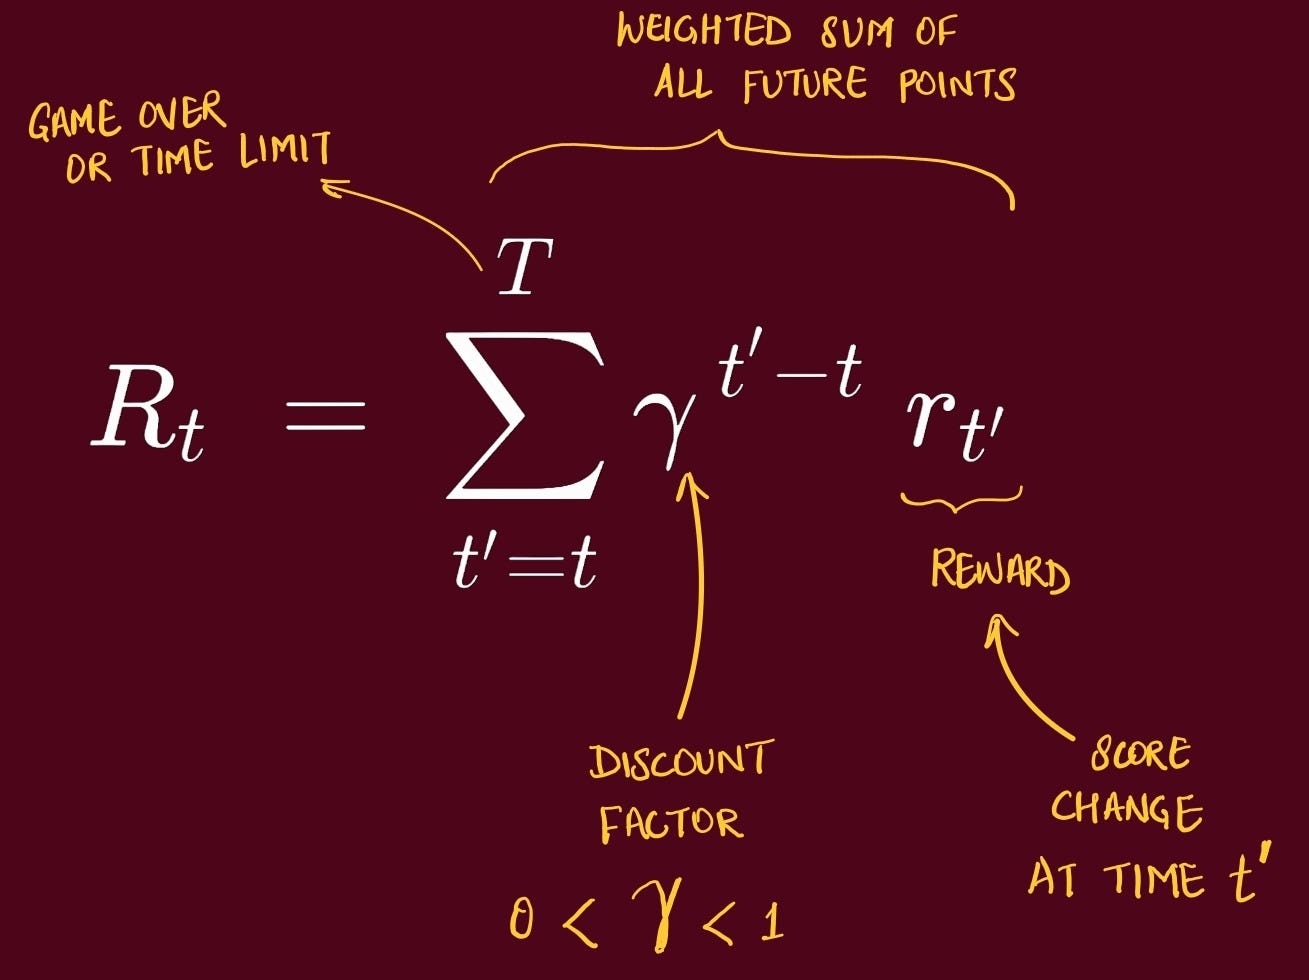 WEIGHTED SUM OF
ALL FUTURE POINTS
GAME OVER
OR TIME LIMIT
T
R_t = ∑ γ^{t′−t} r_{t′}
t′=t
REWARD
DISCOUNT
FACTOR
0 < γ < 1
SCORE
CHANGE
AT TIME t′